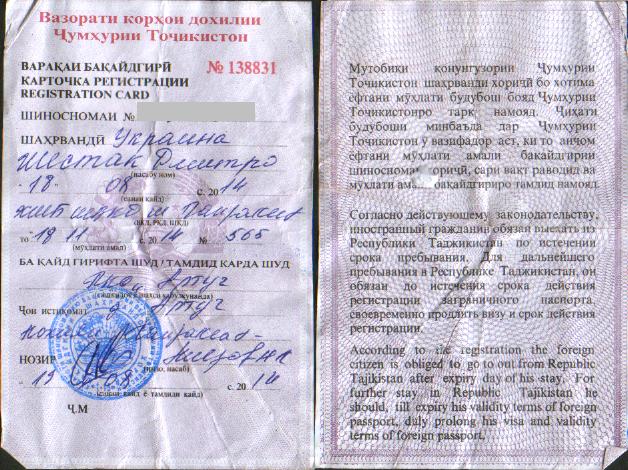 Вазорати корҳои дохилии
Ҷумҳурии Тоҷикистон
ВАРАҚАИ БАҚАЙДГИРӢ
№ 138831
КАРТОЧКА РЕГИСТРАЦИИ
REGISTRATION CARD
ШИНОСНОМАИ №
ШАҲРВАНДӢ Украина
Шестак Дмитро
(насабу ном)
"18" 08 с. 2014
(санаи кайд)
(ВКД, РКД, ШКД)
то "18" 11 с. 2014 № 565
(мӯҳлати амал)
БА ҚАЙД ГИРИФТА ШУД / ТАМДИД КАРДА ШУД
Артуч
Ҷои истиқомат Артуч
НОЗИР
(ному, насаб)
"19" 08 с. 2014
(санаи қайд ё тамдиди қайд)
Ҷ.М
Мутобики конунгузории Ҷумҳурии
Тоҷикистон шахрванди хориҷӣ бо хотима
ёфтани мӯҳлати будубош бояд Ҷумҳурии
Тоҷикистонро тарк намояд. Ҷиҳати
будубоши минбаъда дар Ҷумҳурии
Тоҷикистон ӯ вазифадор аст, ки то анҷом
ёфтани мӯҳлати амали бакайдгирии
шиносномаи хориҷӣ, сари вакт раводид ва
мӯҳлати амали бакайдгириро тамдид намояд.
Согласно действующему законодательству,
иностранный гражданин обязан выехать из
Республики Таджикистан по истечении
срока пребывания. Для дальнейшего
пребывания в Республике Таджикистан, он
обязан до истечения срока действия
регистрации заграничного паспорта,
своевременно продлить визу и срок действия
регистрации.
According to the registration the foreign
citizen is obliged to go to out from Republic
Tajikistan after expiry day of his stay. For
further stay in Republic Tajikistan he
should, till expiry his validity terms of foreign
passport, duly prolong his visa and validity
terms of foreign passport.